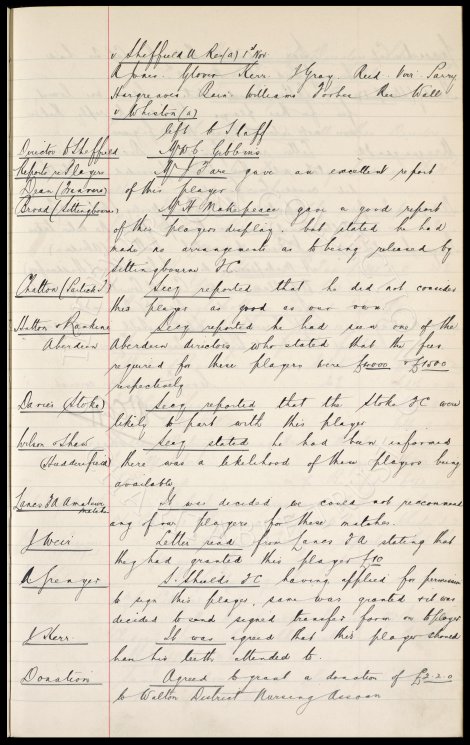 v Sheffield U Res (a) 1st Nov.
A Jones. Glover Kerr. J Gray. Reid. Parry
Hargreaves Bain Williams Forbes Wall
v Whiston (a)
left to Staff
Director to Sheffield Mr W C Gibbins
Reports re Players Mr J Fare gave an excellent report
Dean (Tranmere) of this player
Broad (Sittingbourne) Mr H Makepeace gave a good report
of this players display, but stated he had
made no arrangements as to being released by
Sittingbourne FC
Chatton (Partick T) Secy reported that he did not consider
this player as good as our own.
Hutton & Rankine Secy reported he had seen one of the
Aberdeen Aberdeen directors who stated that the fees
required for these players were £4000 & £1500
respectively
Davies (Stoke) Secy reported that the Stoke FC were
likely to part with this player
Wilson & Shaw Secy stated he had been informed
(Huddersfield) there was a likelihood of these players being
available
Lancs FA Amateur It was decided we could not recommend
matches any of our players for these matches.
J Weir Letter read from Lancs FA stating that
they had granted this player £10
A Grenyer S. Shields FC having applied for permission
to sign this player, same was granted & it was
decided to send signed transfer form on to player
J Kerr. It was agreed that this player should
have his teeth attended to.
Donation Agreed to grant a donation of £2.2.0
to Walton District Nursing Assocn